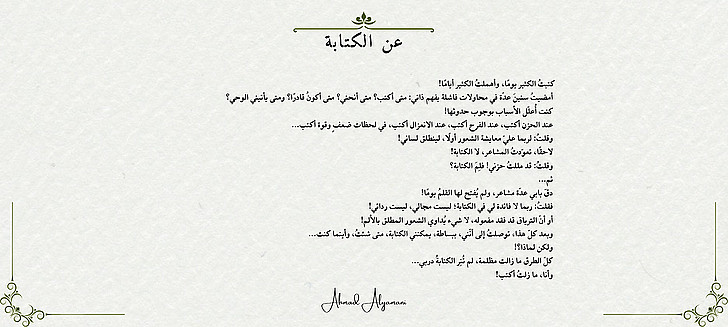 عن الكتابة
كتبتُ الكثير يومًا، وأهملتُ الكثير أيامًا!
أمضيتُ سنينَ عدّة في محاولات فاشلة بفهم ذاتي: متى أكتب؟ متى أنحني؟ متى أكونُ قادرًا؟ ومتى يأتيني الوحي؟
كنت أُعلّل الأسباب بوجوب حدوثها!
عند الحزن أكتب، عند الفرح أكتب، عند الانعزال أكتب، في لحظات ضعفٍ وقوة أكتب...
وقلتُ: لربما عليّ معايشة الشعور أولًا، لينطلق لساني!
لاحقًا، تعوّدتُ المشاعر، لا الكتابة!
وقلتُ: قد مللتُ حزني! فلِمَ الكتابة؟
ثم...
دقّ بابي عدّة مشاعر، ولم يُفتح لها القلمُ يومًا!
فقلتُ: ربما لا فائدة لي في الكتابة؛ ليست مجالي، ليست ردائي!
أو أنّ الترياق قد فقد مفعوله، لا شيء يُداوي الشعور المطلق بالألم!
وبعد كلّ هذا، توصلتُ إلى أنّني، ببساطة، يمكنني الكتابة، متى شئتُ، وأينما كنت...
ولكن لماذا؟!
كلّ الطرق ما زالت مظلمة، لم تُنر الكتابةُ دربي...
وأنا، ما زلتُ أكتب!
Ahmad Alyamani